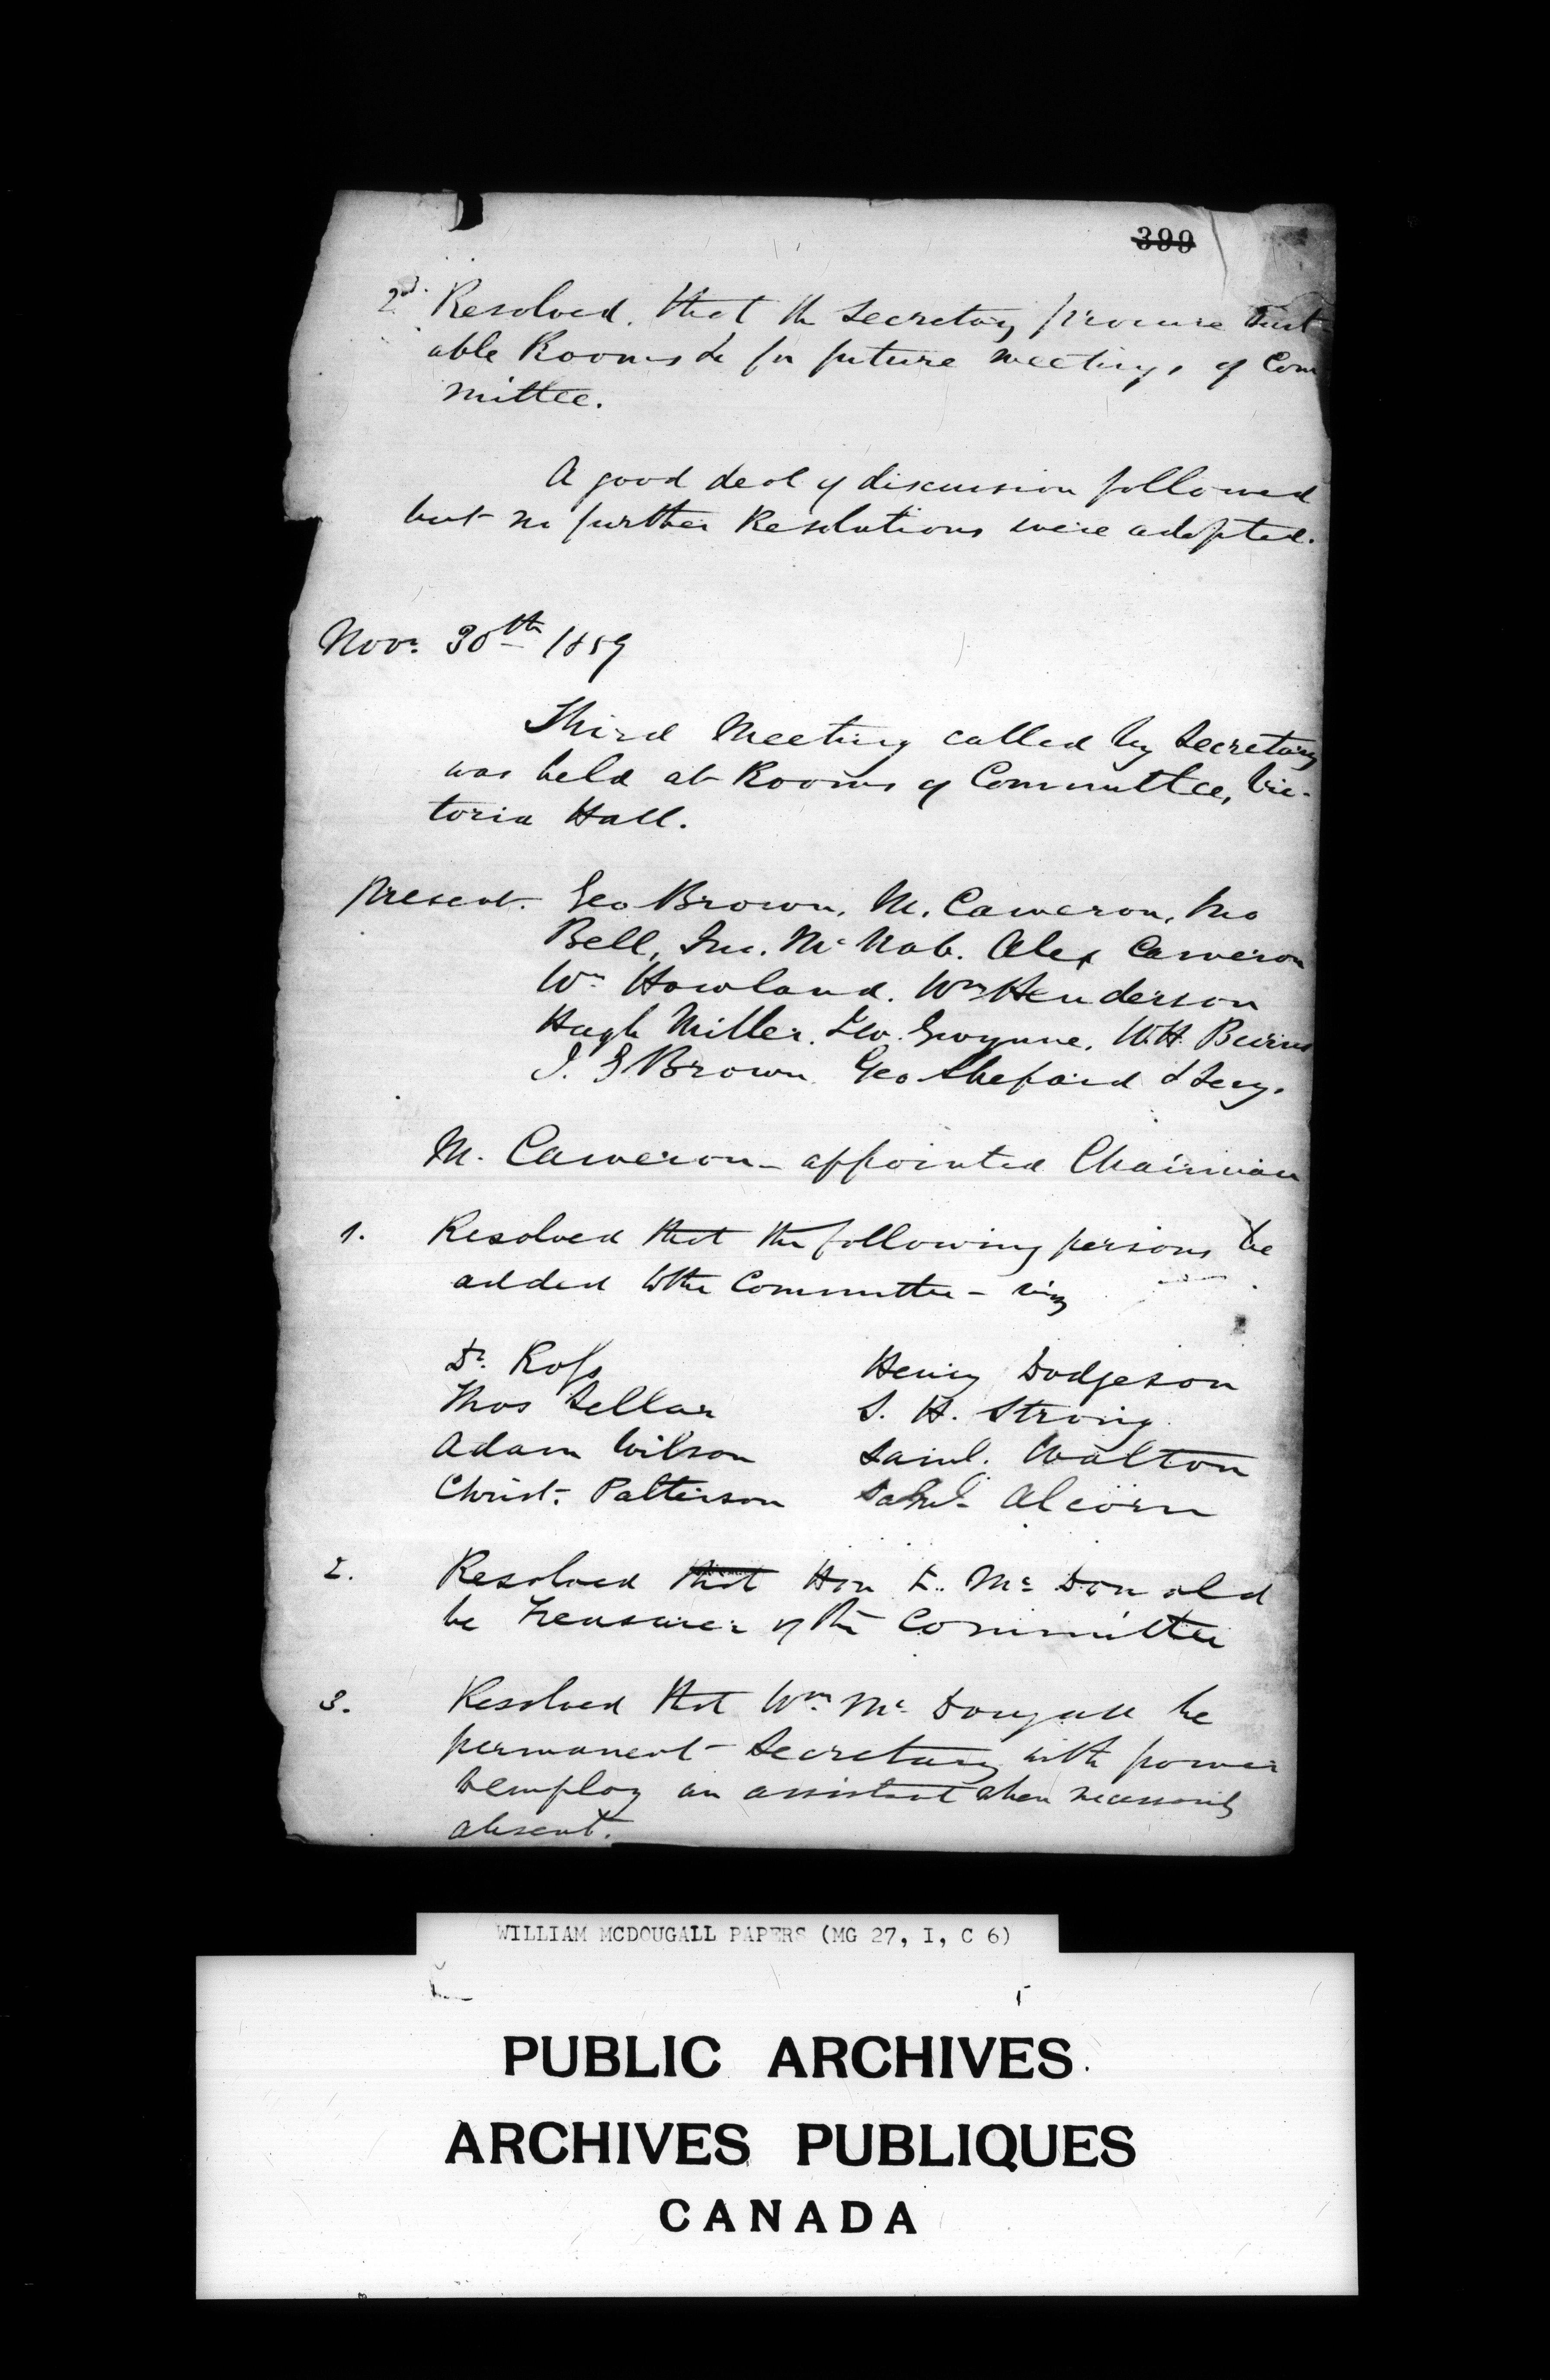 399
2d. Resolved. that the Secretary procure Suit-
able Rooms &c for future meetings of Com
mittee.
A good deal of discussion followed
but no further Resolutions were adopted.
Novr. 30th 1859
Third Meeting called by Secretary
was held at Rooms of Committee, Vic-
toria Hall.
Present. Geo Brown, M. Cameron, Jno
Bell, Jno. McNab. Alex Cameron
Wm Howland. Wm Henderson
Hugh Miller. Gwynne. W.H. Burns
J. G Brown. Geo Shepard & Secy.
M. Cameron - appointed Chairman
1. Resolved that the following persons be
added to the Committee - viz
Dr. Ross Henry Dodgeson
Thos Sellar S. H. Strong.
Adam Wilson Saml. Walton
Christ. Patterson Saml. Alcorn
2. Resolved that Hon E. McDonald
be Treasurer of the Committee
3. Resolved that Wm. McDougall be
permanent Secretary with power
to employ an assistant when necessarily
absent.
WILLIAM MCDOUGALL PAPERS (MG 27, I, C 6)
PUBLIC ARCHIVES
ARCHIVES PUBLIQUES
CANADA